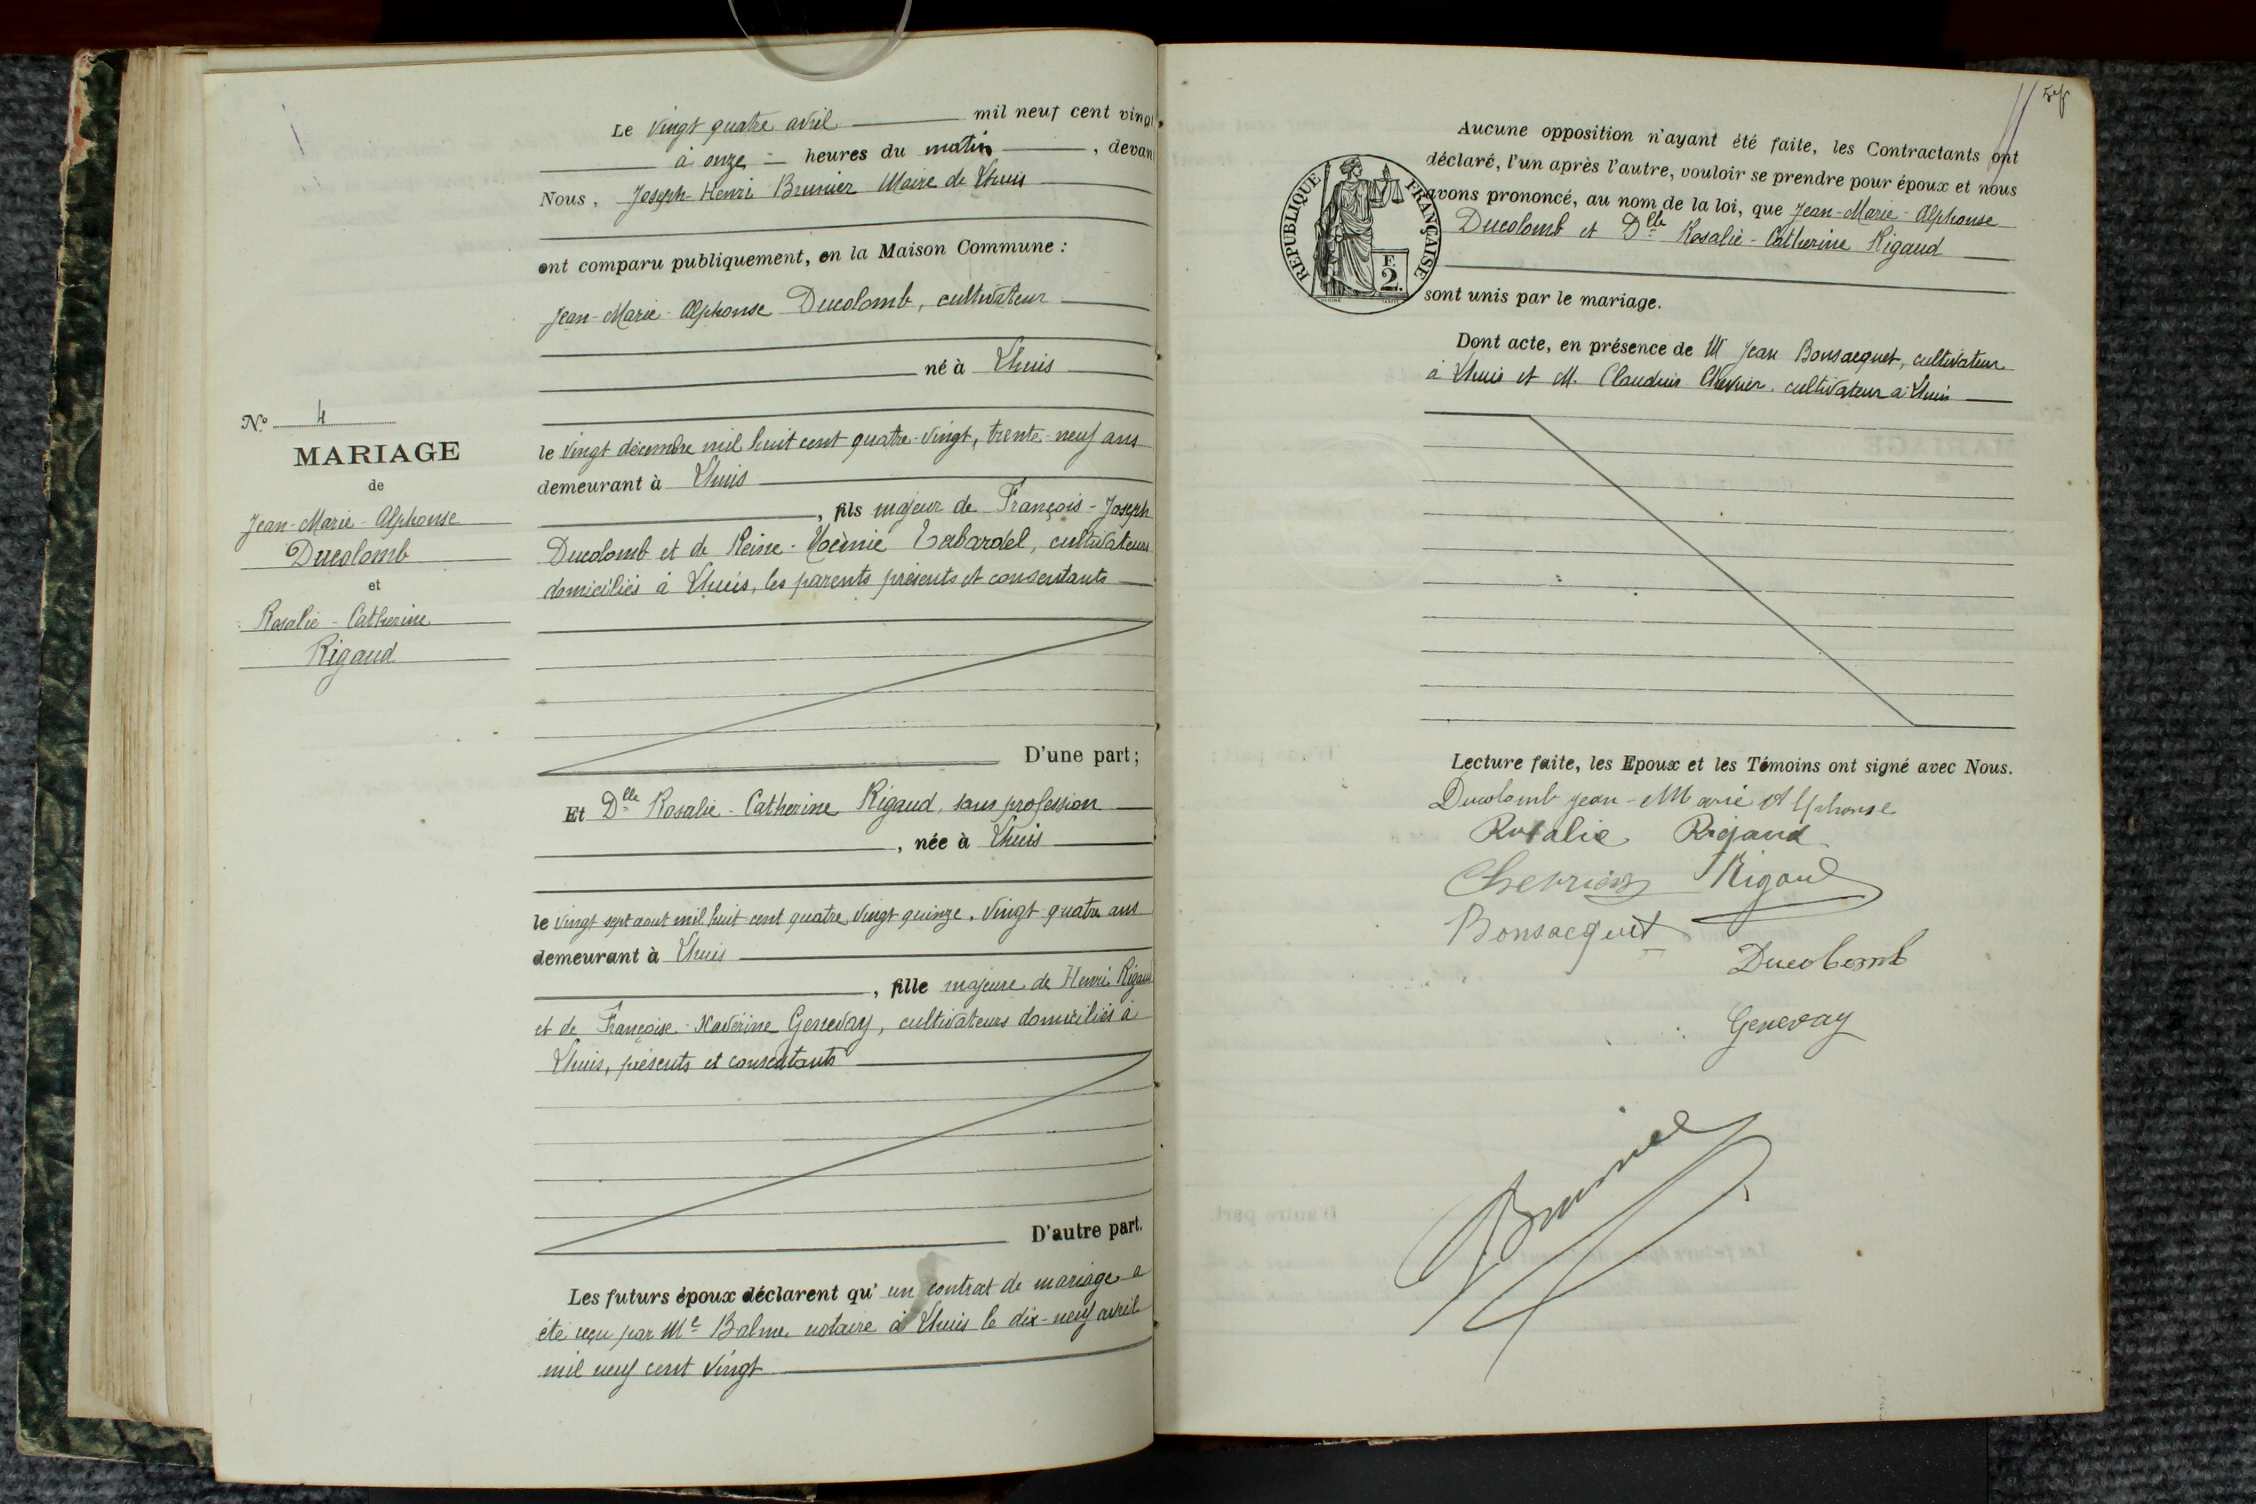 Le vingt quatre avril mil neuf cent vingt
à onze heures du matin, devant
Nous, Joseph-Henri Brunier Maire de Lhuis
ont comparu publiquement, en la Maison Commune :
Jean-Marie-Alphonse Ducolomb, cultivateur
né à Lhuis
le vingt décembre mil huit cent quatre-vingt, trente-neuf ans
demeurant à Lhuis
, fils majeur de François-Joseph
Ducolomb et de Reine- Tabardel, cultivateurs
domiciliés à Lhuis, les parents présents et consentants
D'une part;
Et Dlle Rosalie-Catherine Rigaud, sans profession
, née à Lhuis
le vingt sept aout mil huit cent quatre vingt quinze, vingt quatre ans
demeurant à Lhuis
, fille majeure de Henri Rigaud
et de Françoise-Xavérine Genevay, cultivateurs domiciliés à
Lhuis, présents et consentants
D'autre part.
Les futurs époux déclarent qu'un contrat de mariage a
été reçu par Me Balme, notaire à Lhuis le dix-neuf avril
mil neuf cent vingt
No 4
MARIAGE
de
Jean-Marie-Alphonse
Ducolomb
et
Rosalie-Catherine
Rigaud
Aucune opposition n'ayant été faite, les Contractants ont
déclaré, l'un après l'autre, vouloir se prendre pour époux et nous
avons prononcé, au nom de la loi, que Jean-Marie-Alphonse
Ducolomb et Dlle Rosalie-Catherine Rigaud
sont unis par le mariage.
RÉPUBLIQUE FRANÇAISE
F.
2.
Dont acte, en présence de M Jean Bonsacquet, cultivateur
à Lhuis et M. Claudius Chevrier, cultivateur à Lhuis
Lecture faite, les Epoux et les Témoins ont signé avec Nous.
Ducolomb Jean-Marie Alphonse
Rosalie Rigaud
Chevrier Rigaud
Bonsacquet
Ducolomb
Genevay
Brunier